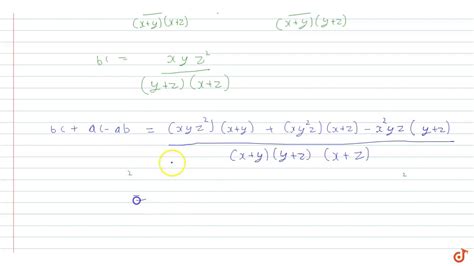 (x+y)(x+z) (x+y)(y+z)
bc = xyz²
(y+z)(x+z)
bc + ac - ab = (xyz²)(x+y) + (xy²z)(x+z) - x²yz(y+z)
(x+y)(y+z)(x+z)
2 2
=